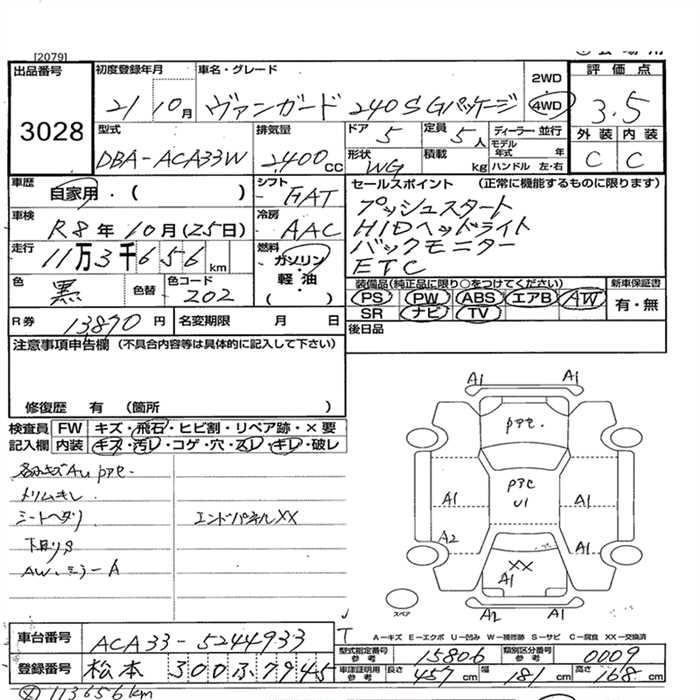 [2079]
出品番号
3028
初度登録年月
21 10月
車名・グレード
ヴァンガード 240S Gパッケージ
2WD
4WD
評価点
3.5
外装 内装
C C
型式
DBA-ACA33W
排気量
2400cc
ドア 5
定員 5人
形状 WG
積載 kg
ディーラー・並行
モデル年式 年
ハンドル 左・右
車歴
自家用・( )
シフト FAT
車検 R8年10月(25日)
冷房 AAC
走行 11万3千656km
燃料
ガソリン・
軽・油
( )
色 黒
色替
色コード 202
R券 13890円
名変期限 月 日
セールスポイント (正常に機能するものに限ります)
プッシュスタート
HIDヘッドライト
バックモニター
ETC
装備品(純正品に限り○をつけてください)
PS PW ABS エアB AW
SR ナビ TV
新車保証書
有・無
後日品
注意事項申告欄(不具合内容等は具体的に記入して下さい)
修復歴 有 (箇所 )
検査員記入欄
FW キズ・飛石・ヒビ割・リペア跡・×要
内装 キズ・汚レ・コゲ・穴・スレ・キレ・破レ
トリムキレ
シートヘタリ
エンドパネルXX
下回りS
AW、ミラーA
A1 A1
A1 A1
A2 A1
U1
XX
A1
A2 A1
スペア
A-キズ E-エクボ U-凹み W-補修跡 S-サビ C-腐食 XX-交換済
車台番号 ACA33-5244933
登録番号 松本 300 ふ 7945
型式指定番号 参考 15806
類別区分番号 参考 0009
車庫証明用 参考 長さ 457cm 幅 181cm 高さ 168cm
113656km